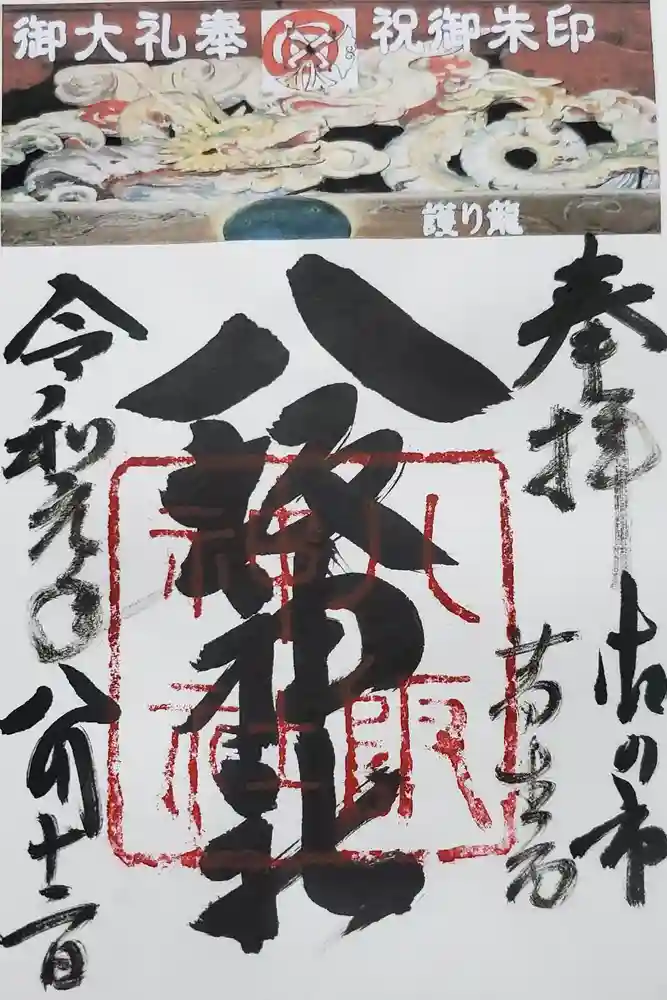 御大礼奉祝御朱印
護り龍
奉拝
古の市
八阪神社
八阪神社
令和元年八月十二日